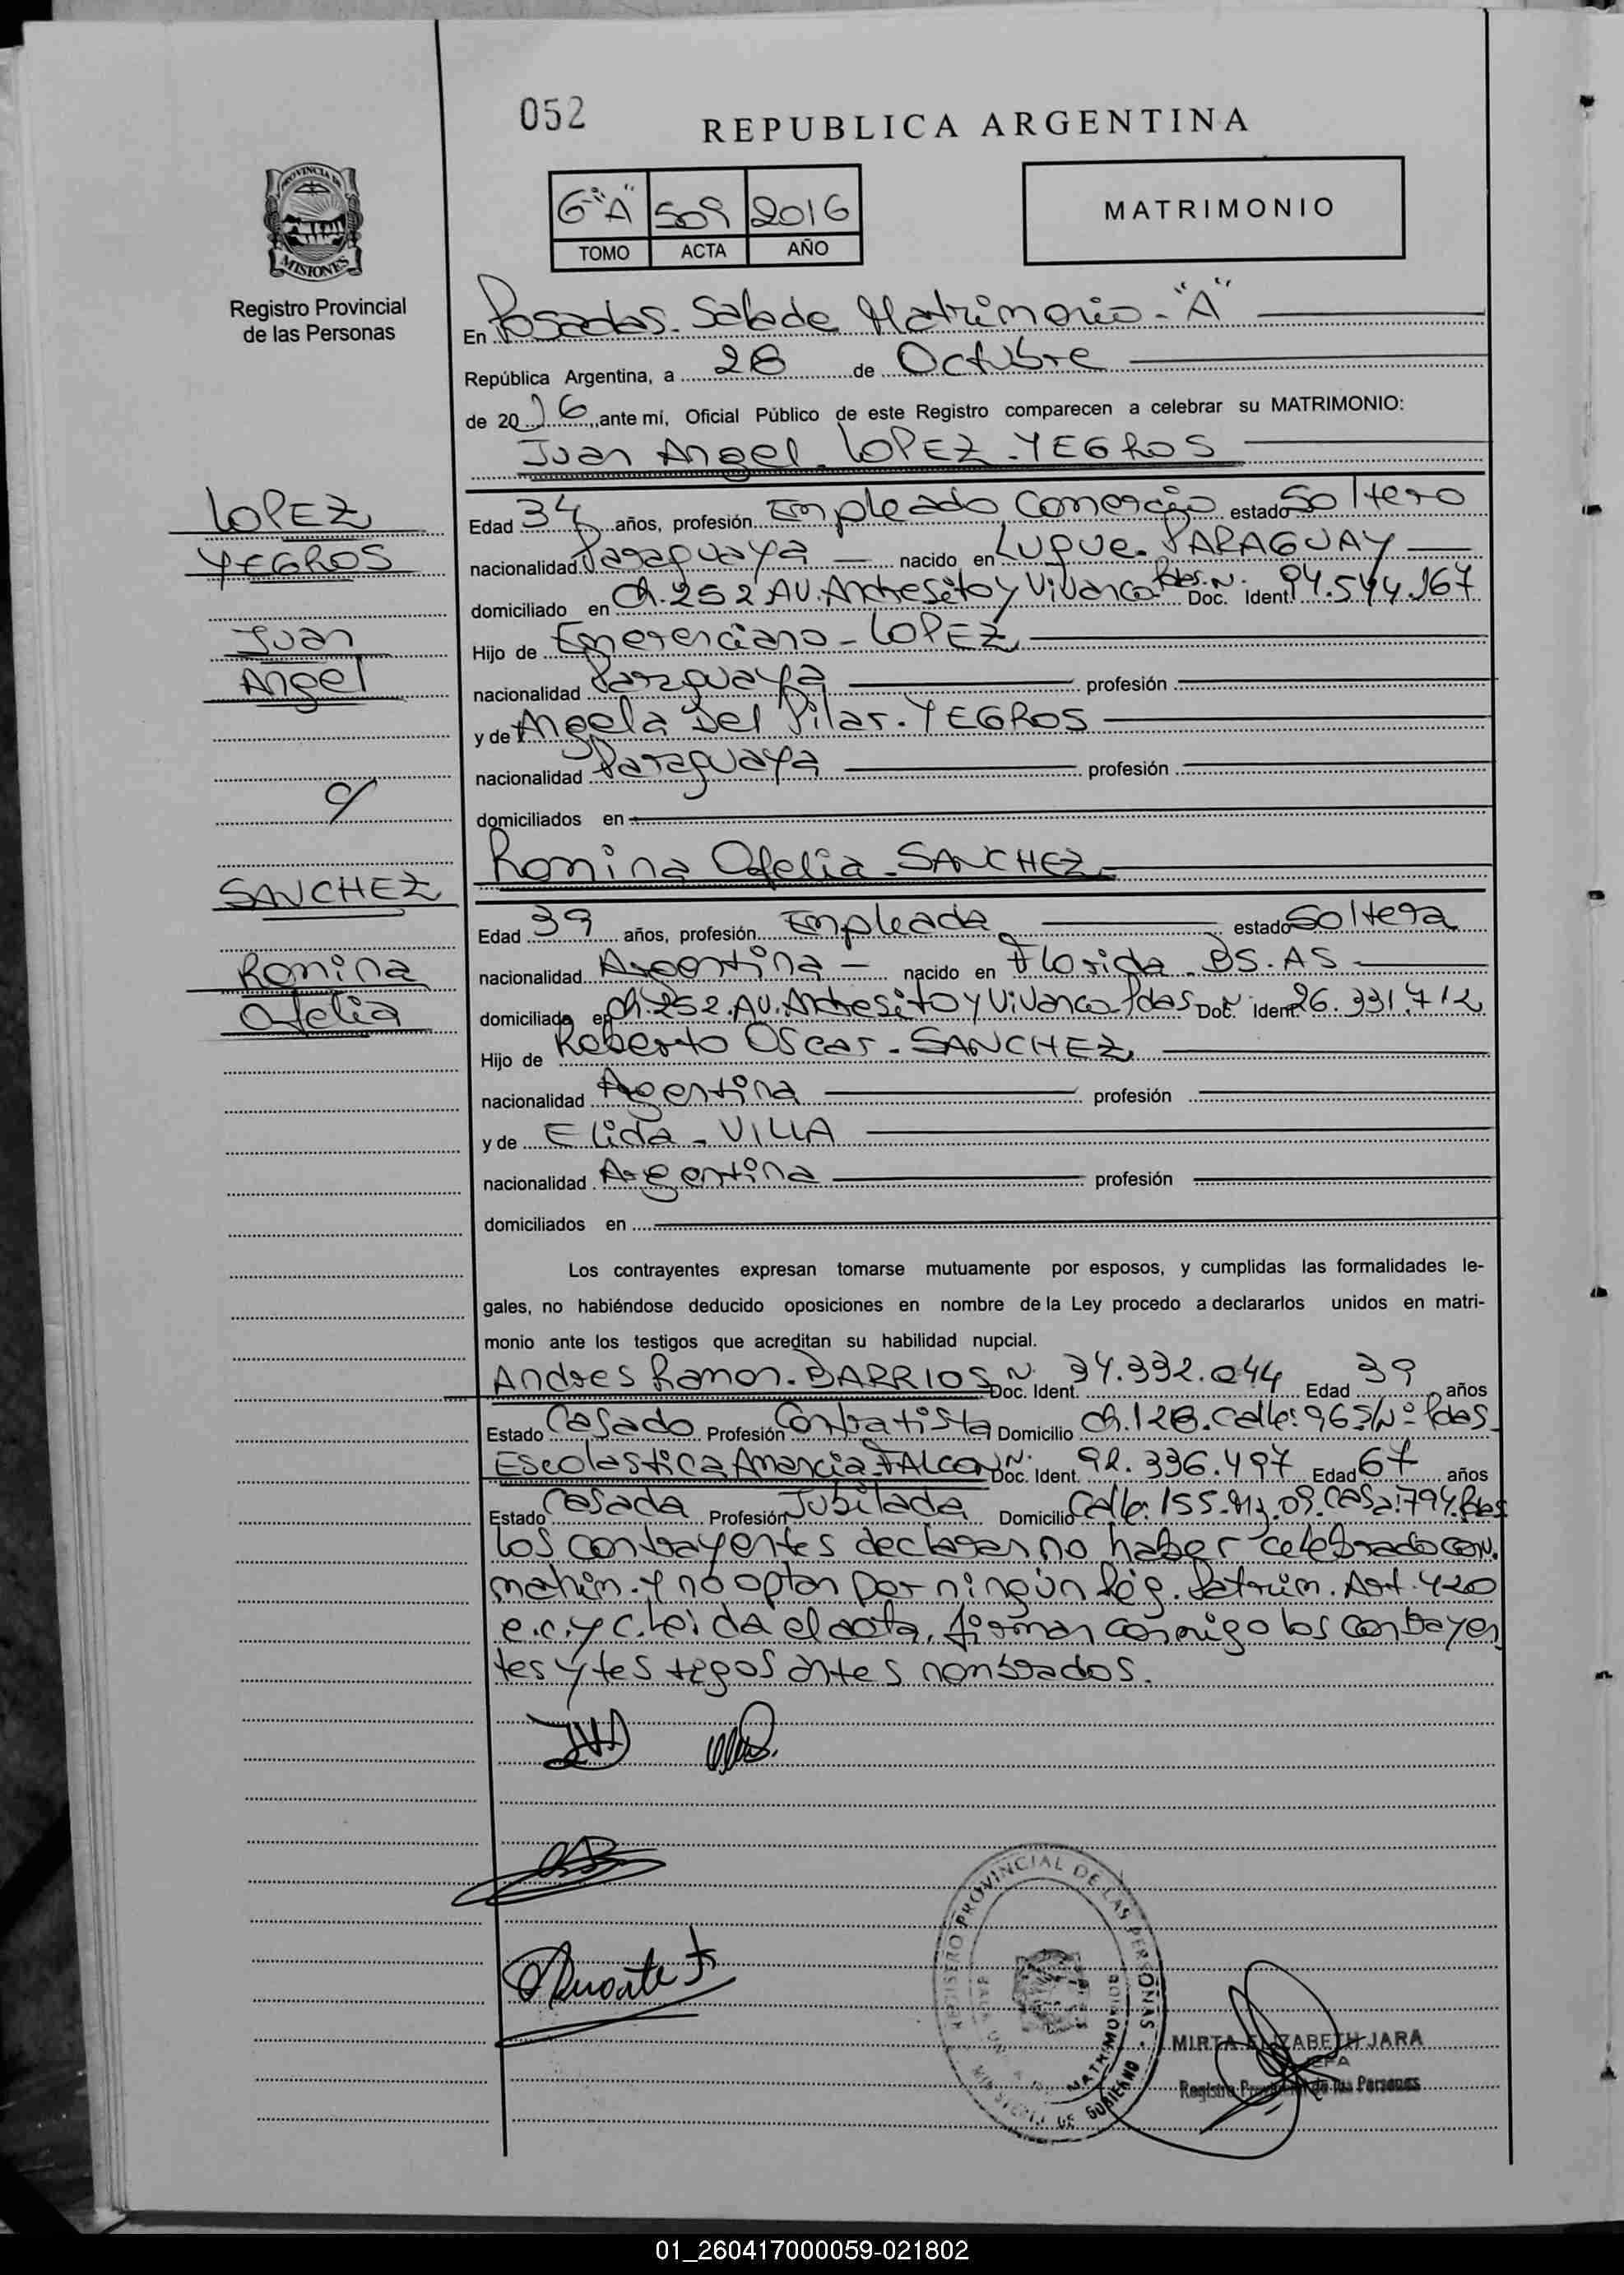 052
REPUBLICA ARGENTINA
PROVINCIA DE
MISIONES
Registro Provincial
de las Personas
6º "A" 509 2016
TOMO ACTA AÑO
MATRIMONIO
En Posadas. Sala de Matrimonio - "A"
República Argentina, a 28 de Octubre
de 2016, ante mí, Oficial Público de este Registro comparecen a celebrar su MATRIMONIO:
Juan Angel. LOPEZ. YEGROS
LOPEZ
YEGROS
Juan
Angel
c/
SANCHEZ
Romina
Ofelia
Edad 34 años, profesión Empleado Comercio estado Soltero
nacionalidad Paraguaya nacido en Luque. PARAGUAY
domiciliado en Ch. 252 AV. Andresito y Vivanco Pdas. Doc. Ident. Nº 94.544.167
Hijo de Emerenciano - LOPEZ
nacionalidad Paraguaya profesión
y de Angela Del Pilar. YEGROS
nacionalidad Paraguaya profesión
domiciliados en
Romina Ofelia - SANCHEZ
Edad 39 años, profesión Empleada estado Soltera
nacionalidad Argentina nacido en Florida. BS. AS
domiciliada en Ch. 252. AV. Andresito y Vivanco Pdas Doc. Ident. Nº 26.331.712
Hijo de Roberto Oscar - SANCHEZ
nacionalidad Argentina profesión
y de Elida - VILLA
nacionalidad Argentina profesión
domiciliados en
Los contrayentes expresan tomarse mutuamente por esposos, y cumplidas las formalidades le-
gales, no habiéndose deducido oposiciones en nombre de la Ley procedo a declararlos unidos en matri-
monio ante los testigos que acreditan su habilidad nupcial.
Andres Ramon. BARRIOS Doc. Ident. Nº 34.332.044 Edad 39 años
Estado Casado Profesión Contratista Domicilio Ch. 128. Calle: 96 S/Nº Pdas
Escolastica Amancia FALCON Doc. Ident. Nº 92.336.497 Edad 67 años
Estado Casada Profesión Jubilada Domicilio Calle: 155. Mz. 09. Casa: 794. Pdas
Los contrayentes declaran no haber celebrado conv.
matrim. y no optan por ningún Rég. Patrim. Art. 420
e. C. y C. Leida el acta, firman conmigo los contrayen
tes y testigos antes nombrados.
REGISTRO PROVINCIAL DE LAS PERSONAS
MINISTERIO DE GOBIERNO
MATRIMONIOS
Duarte F
MIRTA ELIZABETH JARA
JEFA
Registro Provincial de las Personas
01_260417000059-021802